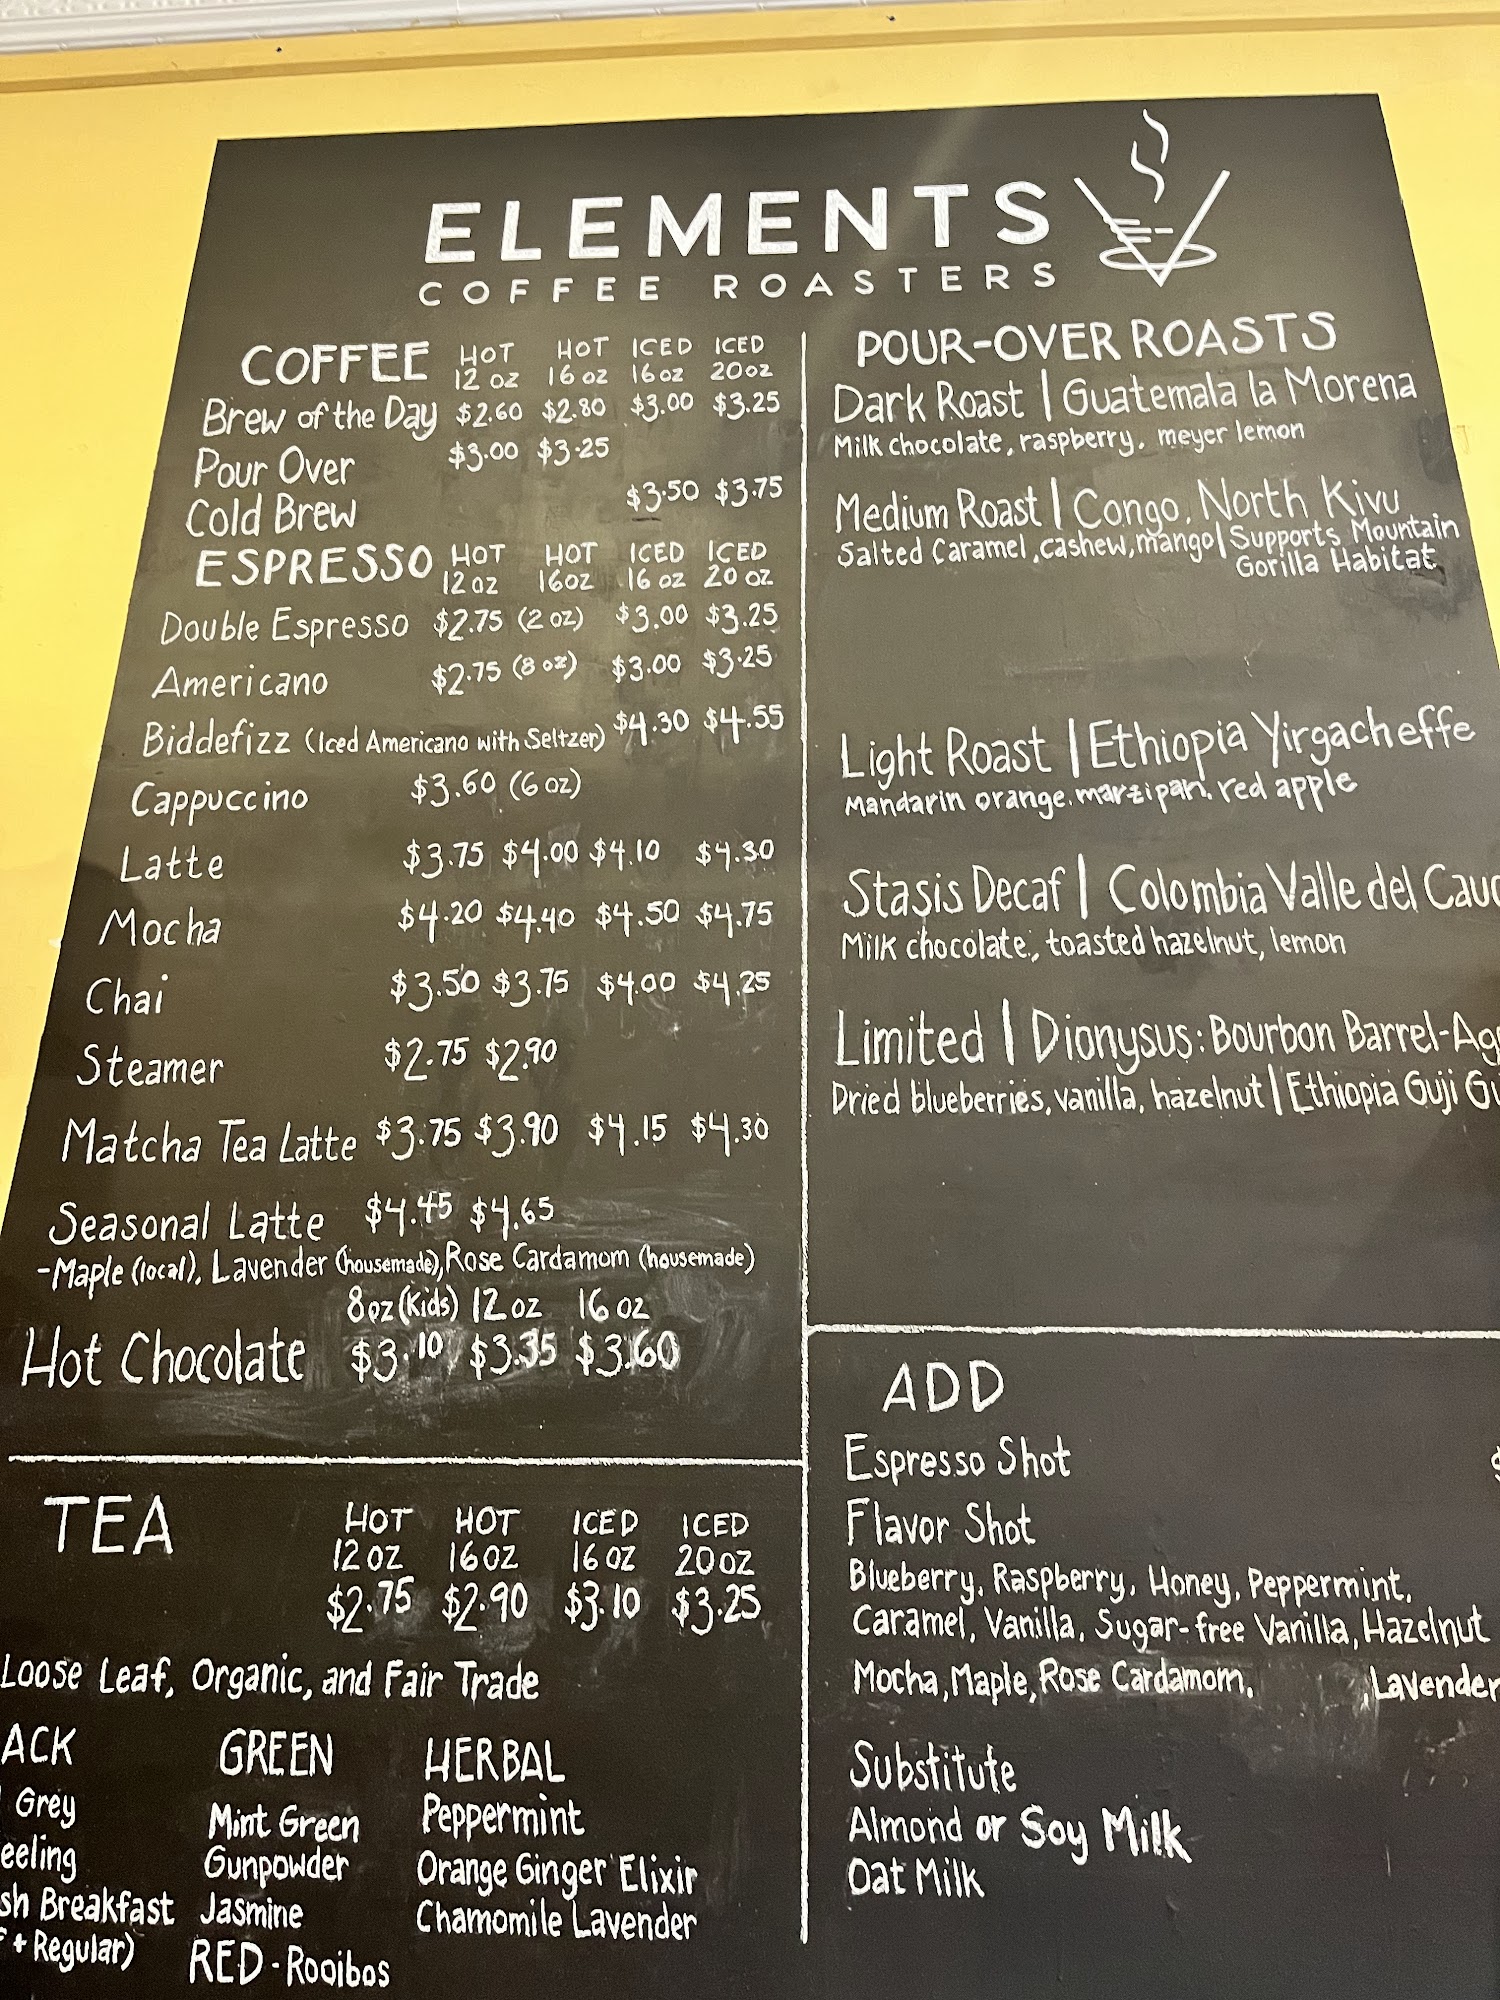 ELEMENTS
COFFEE ROASTERS
COFFEE HOT HOT ICED ICED
12 oz 16 oz 16oz 20oz
Brew of the Day $2.60 $2.80 $3.00 $3.25
Pour Over $3.00 $3.25
Cold Brew $3.50 $3.75
ESPRESSO HOT HOT ICED ICED
12 oz 16oz 16 oz 20 oz
Double Espresso $2.75 (2 oz) $3.00 $3.25
Americano $2.75 (8 oz) $3.00 $3.25
Biddefizz (Iced Americano with Seltzer) $4.30 $4.55
Cappuccino $3.60 (6 oz)
Latte $3.75 $4.00 $4.10 $4.30
Mocha $4.20 $4.40 $4.50 $4.75
Chai $3.50 $3.75 $4.00 $4.25
Steamer $2.75 $2.90
Matcha Tea Latte $3.75 $3.90 $4.15 $4.30
Seasonal Latte $4.45 $4.65
-Maple (local), Lavender (housemade), Rose Cardamom (housemade)
8oz (Kids) 12 oz 16 oz
Hot Chocolate $3.10 $3.35 $3.60
POUR-OVER ROASTS
Dark Roast | Guatemala la Morena
Milk chocolate, raspberry, meyer lemon
Medium Roast | Congo, North Kivu
Salted Caramel, cashew, mango | Supports Mountain
Gorilla Habitat
Light Roast | Ethiopia Yirgacheffe
Mandarin orange, marzipan, red apple
Stasis Decaf | Colombia Valle del Cauc
Milk chocolate, toasted hazelnut, lemon
Limited | Dionysus: Bourbon Barrel-Ag
Dried blueberries, vanilla, hazelnut | Ethiopia Guji Gu
TEA HOT HOT ICED ICED
12 OZ 16 OZ 16 OZ 20 OZ
$2.75 $2.90 $3.10 $3.25
Loose Leaf, Organic, and Fair Trade
ACK GREEN HERBAL
Grey Mint Green Peppermint
eeling Gunpowder Orange Ginger Elixir
sh Breakfast Jasmine Chamomile Lavender
+ Regular) RED - Rooibos
ADD
Espresso Shot $
Flavor Shot
Blueberry, Raspberry, Honey, Peppermint,
Caramel, Vanilla, Sugar-free Vanilla, Hazelnut
Mocha, Maple, Rose Cardamom, , Lavender
Substitute
Almond or Soy Milk
Oat Milk